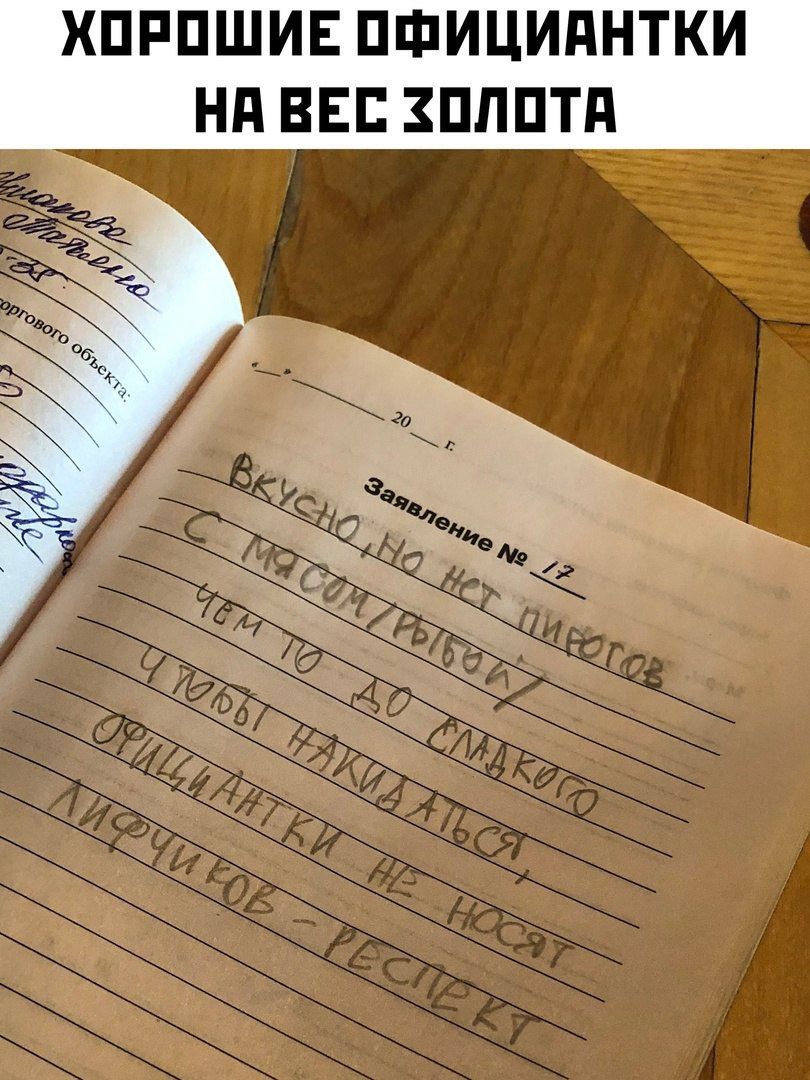 ХОРОШИЕ ОФИЦИАНТКИ
НА ВЕС ЗОЛОТА
Татьяна
торгового объекта:
"__" ________ 20 __ г.
Заявление № 17
ВКУСНО, НО НЕТ ПИРОГОВ
С МЯСОМ/РЫБОЙ/
ЧЕМ ТО ДО СЛАДКОГО
ЧТОБЫ НАКИДАТЬСЯ,
ОФИЦИАНТКИ НЕ НОСЯТ
ЛИФЧИКОВ – РЕСПЕКТ